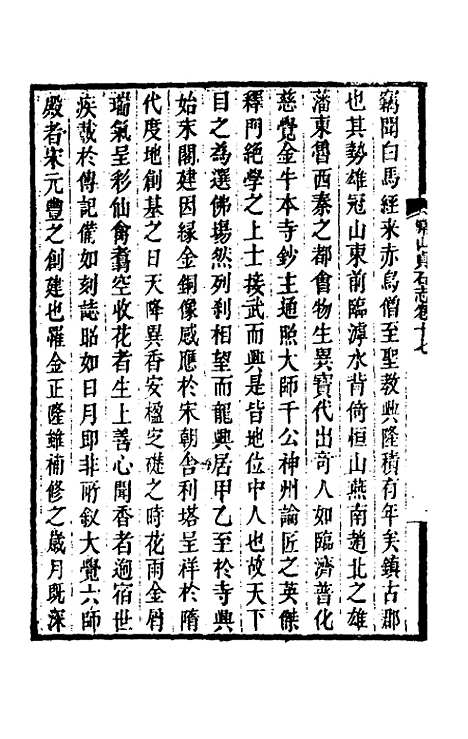 常山貞石志卷十七
竊聞白馬經來赤烏僧至聖教興隆積有年矣鎮古郡
也其勢雄冠山東前臨滹水背倚恒山燕南趙北之雄
藩東魯西秦之都會物生異寶代出奇人如臨濟普化
慈覺金牛本寺鈔主通照大師千公神州論匠之英傑
釋門絕學之上士接武而興是皆地位中人也故天下
目之為選佛場然列刹相望而龍興居甲乙至於寺興
始末閣建因緣金銅像感應於宋朝舍利塔呈祥於隋
代度地創基之日天降異香安楹定礎之時花雨金屑
瑞氣呈彩仙禽翥空收花者生上善心聞香者迥宿世
疾哉於傳記備如刻誌昭如日月即非所敘大覺六師
殿者宋元豐之創建也罹金正隆雖補修之歲月既深